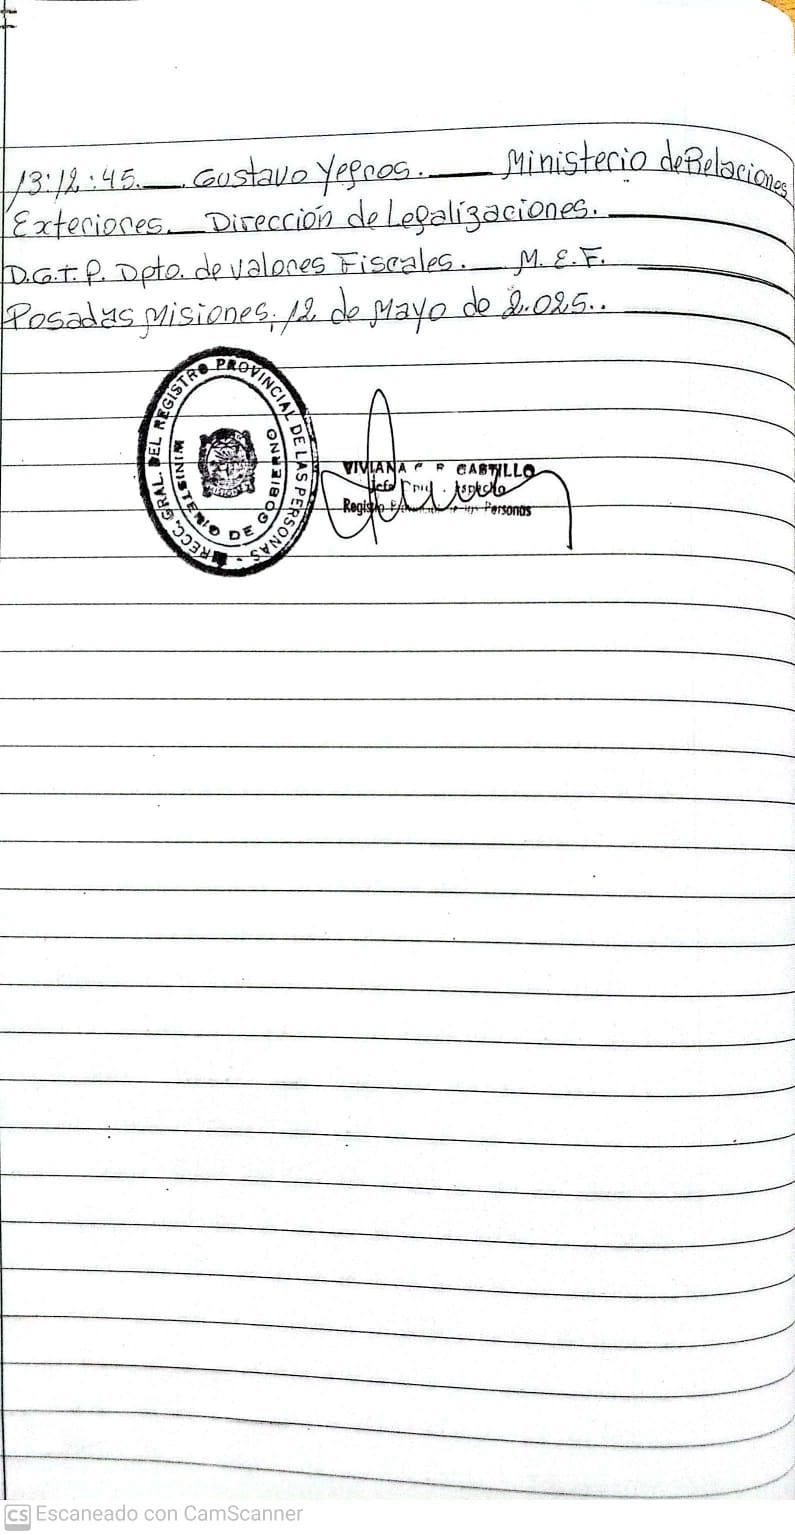 13:12:45.__. Gustavo Yegros.___ Ministerio de Relaciones
Exteriores.__ Dirección de Legalizaciones.
D.G.T.P. Dpto. de valores Fiscales.__ M.E.F.
Posadas Misiones, 12 de Mayo de 2.025..
DIRECC. GRAL. DEL REGISTRO PROVINCIAL DE LAS PERSONAS -
MINISTERIO DE GOBIERNO
VIVIANA CASTILLO
Jefe
Registro Personas
CS Escaneado con CamScanner